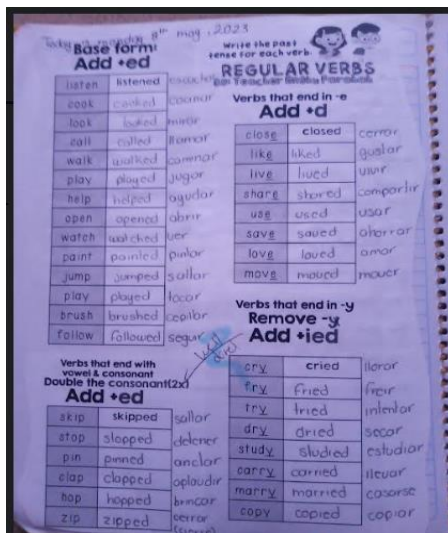 Today is monday 8th may, 2023
Base form:
Add +ed
listen listened escuchar
cook cooked cocinar
look looked mirar
call called llamar
walk walked caminar
play played jugar
help helped ayudar
open opened abrir
watch watched ver
paint painted pintar
jump jumped saltar
play played tocar
brush brushed cepillar
follow followed seguir
Verbs that end with
vowel & consonant
Double the consonant(2x)
Add +ed
skip skipped saltar
stop stopped detener
pin pinned anclar
clap clapped aplaudir
hop hopped brincar
zip zipped cerrar
Write the past
tense for each verb.
REGULAR VERBS
Teacher
Verbs that end in -e
Add +d
close closed cerrar
like liked gustar
live lived vivir
share shared compartir
use used usar
save saved ahorrar
love loved amar
move moved mover
Verbs that end in -y
Remove -y
Add +ied
cry cried llorar
fry fried freir
try tried intentar
dry dried secar
study studied estudiar
carry carried llevar
marry married casarse
copy copied copiar